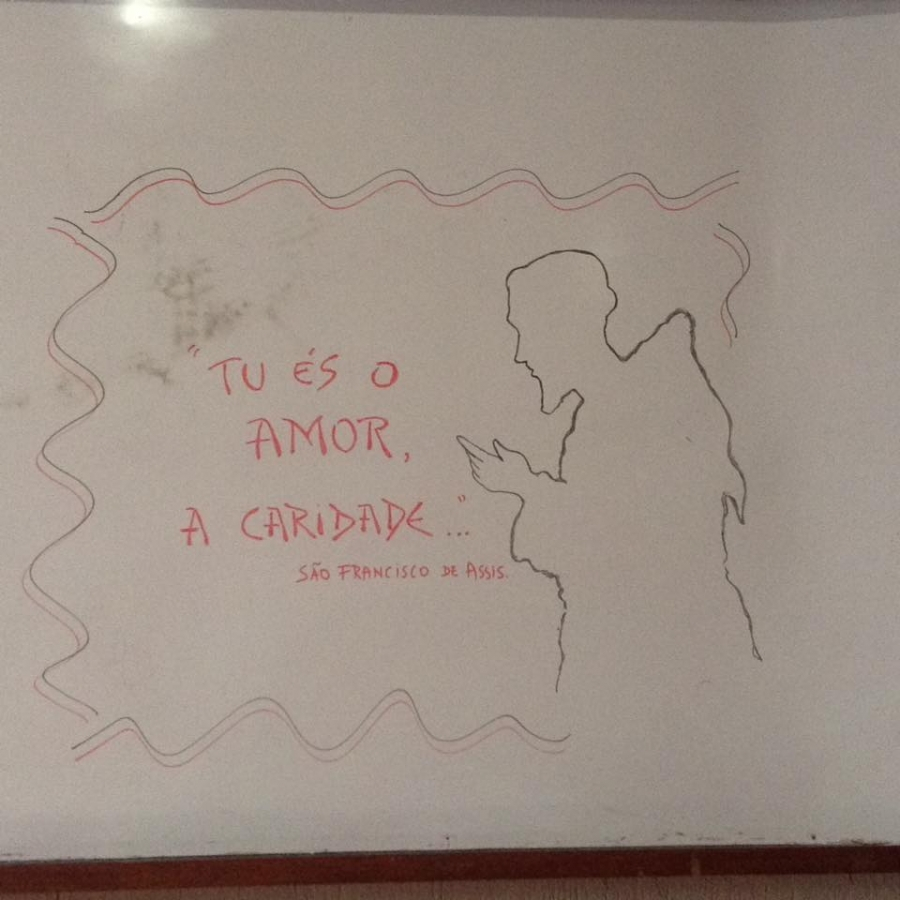 "TU ÉS O
AMOR,
A CARIDADE..."
SÃO FRANCISCO DE ASSIS.